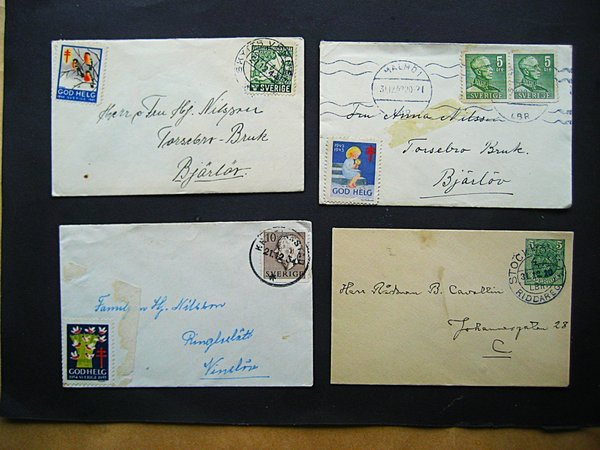 GOD HELG
SVERIGE
SVERIGE
Herr o Fru Hj. Nilsson
Torsebro-Bruk
Bjärlöv.
MALMÖ 1
5 öre
SVERIGE
5 öre
SVERIGE
LBR
Fru Anna Nilsson
Torsebro Bruk.
Bjärlöv
1942
1943
GOD HELG
10
SVERIGE
21.12.
Familjen Hj. Nilsson
Ringleslätt
Vinslöv
GOD HELG
1954 SVERIGE 1955
5
31.12.
RIDDAREG
Herr Rådman B. Cavallin
Johannesgatan 28
C